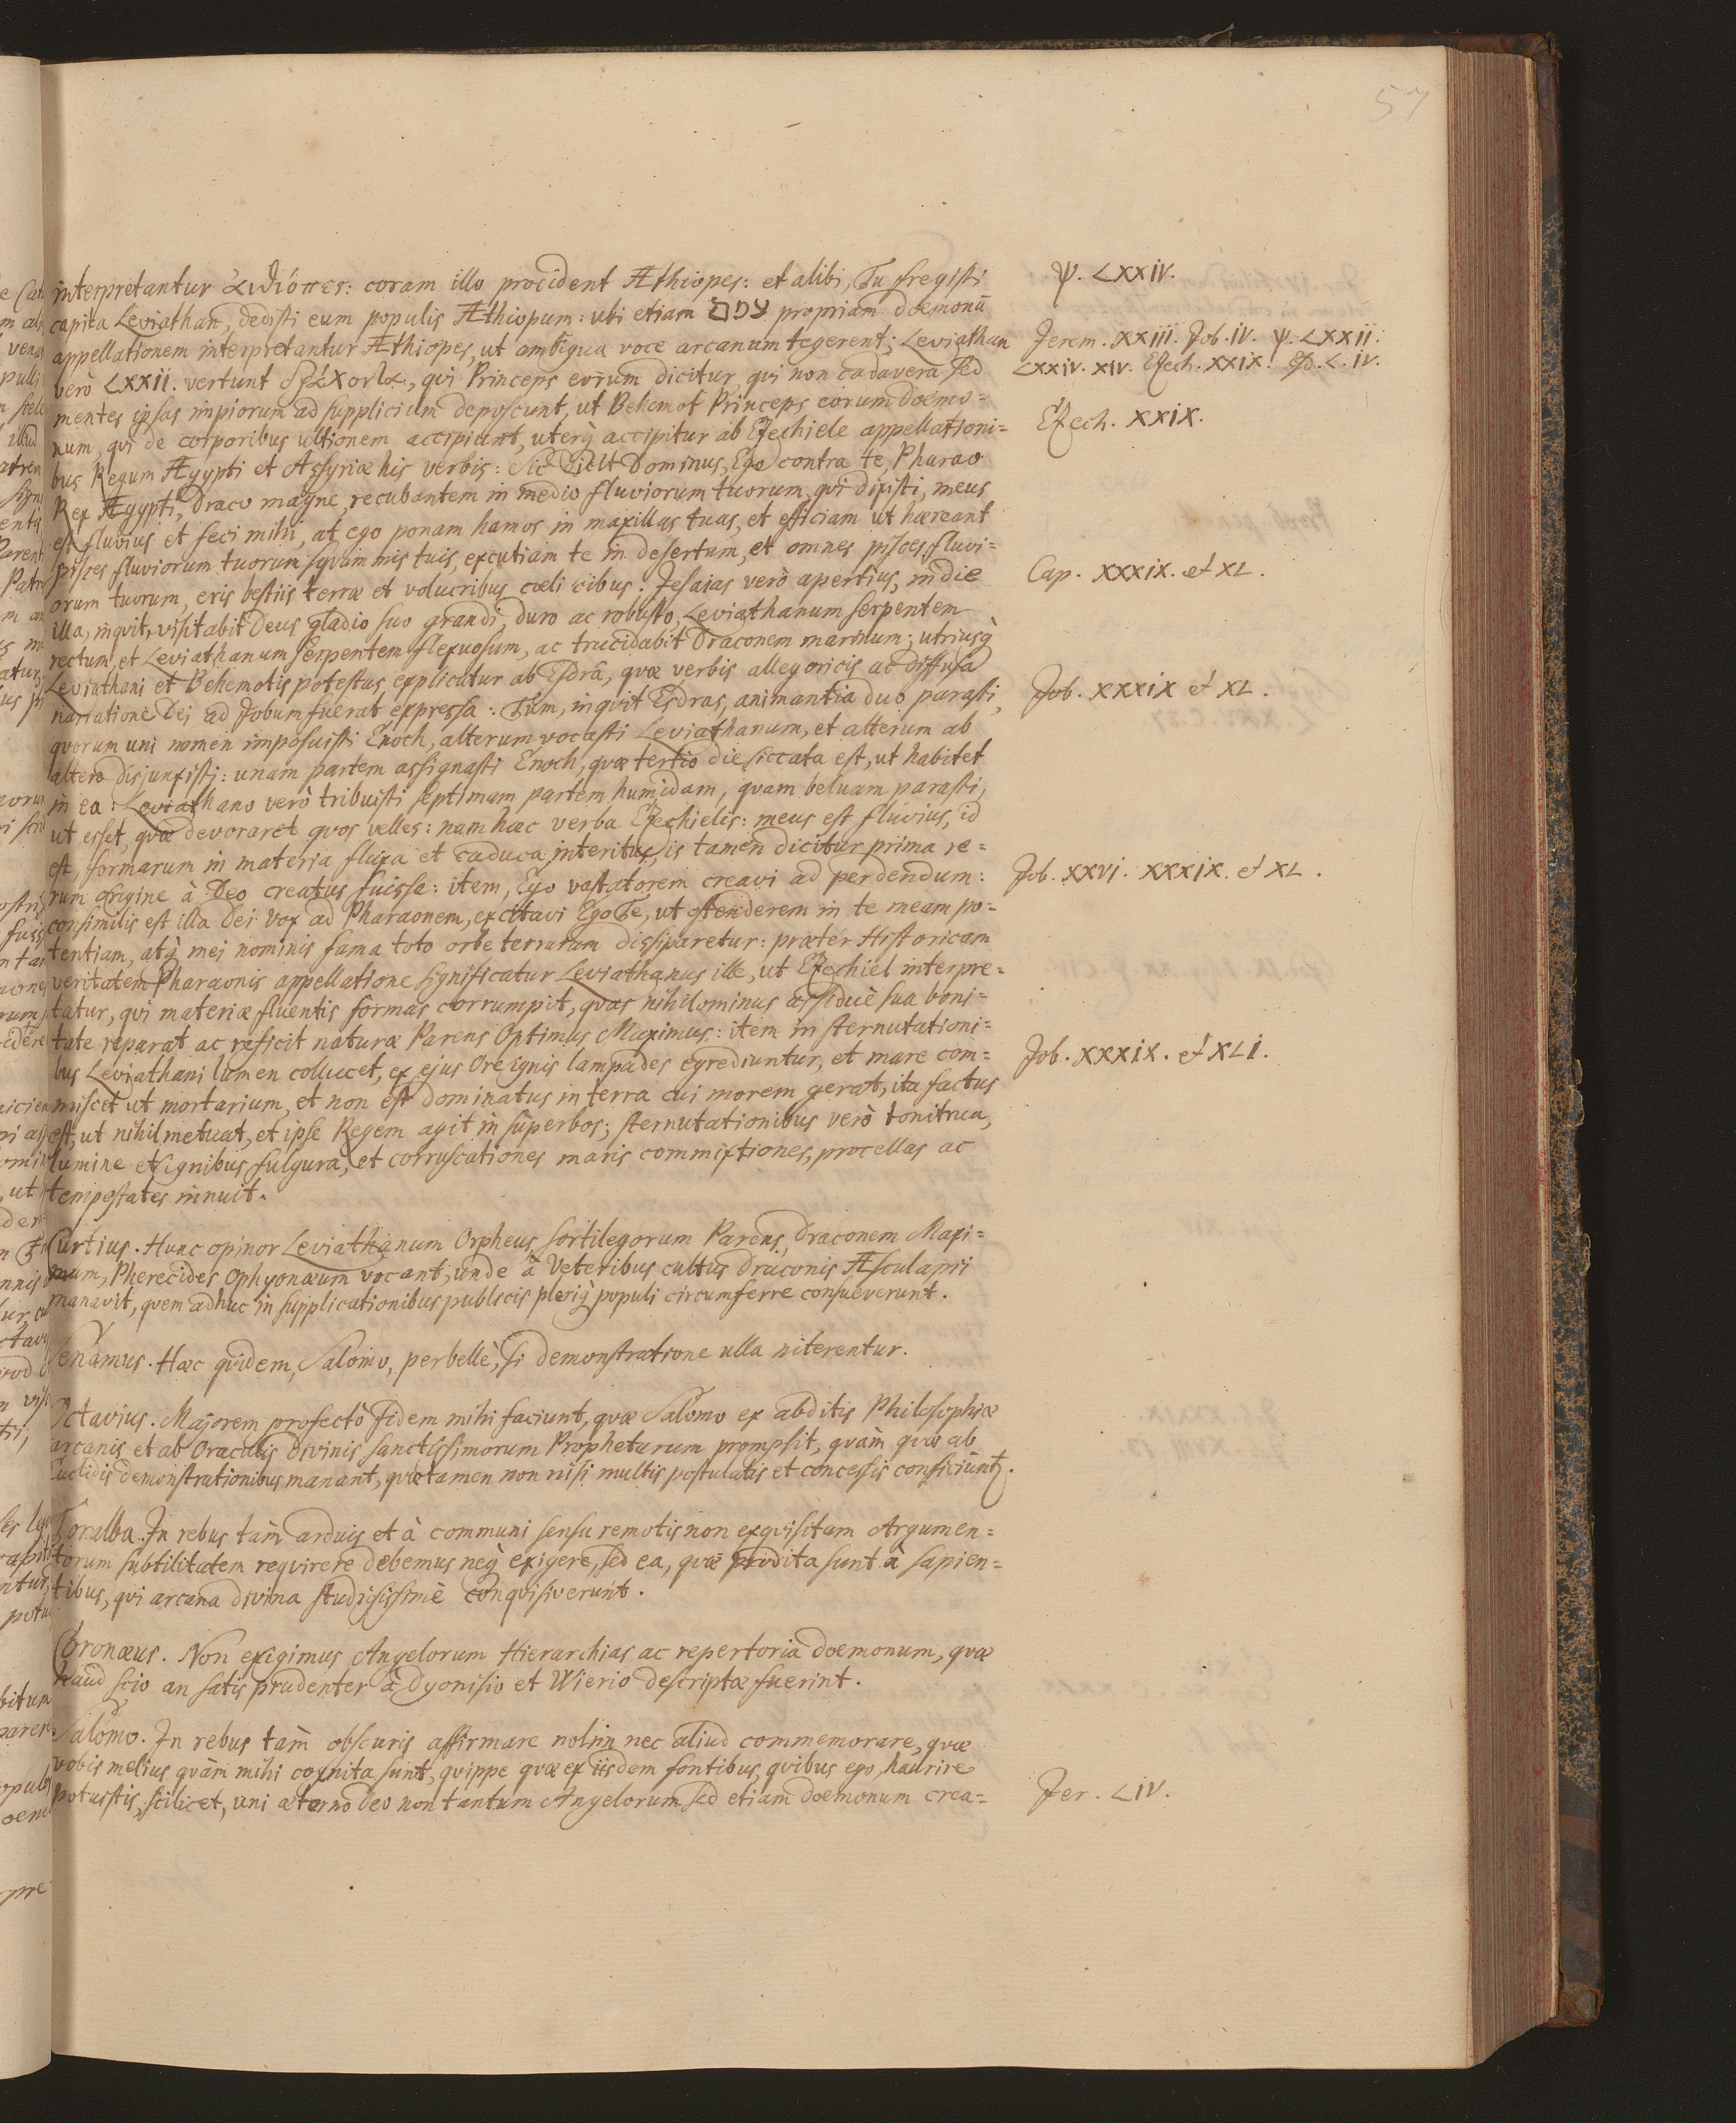 57
interpretantur ἀιθίοπες: coram illo procident Æthiopes: et alibi, Tu fregisti
capita Leviathan, dedisti eum populis Æthiopum: ubi etiam propriam doemonū
appellationem interpretantur Æthiopes, ut ambigua voce arcanum tegerent; Leviathan
verò LXXII. vertunt, qvi Princeps eorum dicitur, qvi non cadavera sed
mentes ipsas impiorum ad supplicium deposcunt, ut Behemot Princeps eorum doemo=
num, qvi de corporibus ultionem accipiunt, uterq̀ accipitur ab Ezechiele appellationi=
bus Regum Ægypti et Assyriæ his verbis: Sic dicit Dominus, Ego contra te, Pharao
Rex Ægypti, Draco magne, recubantem in medio fluviorum tuorum, qvi dixisti, meus
est fluvius et feci mihi, at ego ponam hamos in maxillas tuas, et efficiam ut hæreant
pisces fluviorum tuorum sqvammis tuis, excutiam te in desertum, et omnes pisces fluvi=
orum tuorum, eris bestiis terræ et volucribus coeli cibus: Jesaias verò apertius, in die
illa, inqvit, visitabit Deus gladio suo grandi, duro ac robusto, Leviathanum serpentem
rectum, et Leviathanum serpentem flexuosum, ac trucidabit Draconem marinum; utriusq̀
Leviathani et Behemotis potestas explicatur ab Esdrâ, qvæ verbis allegoricis ac diffusa
narratione Dei ad Jobum fuerat expressa: Tum, inqvit Esdras, animantia duo parasti,
qvorum uni nomen imposuisti Enoch, alterum vocasti Leviathanum, et alterum ab
altero disjunxisti: unam partem assignasti Enoch, qvæ tertio die siccata est, ut habitet
in ea: Leviathano verò tribuisti septimam partem humidam, qvam beluam parasti,
ut esset, qvæ devoraret qvos velles: nam hæc verba Ezechielis: meus est fluvius, id
est, formarum in materia fluxa et caduca interitus, is tamen dicitur prima re=
rum origine à Deo creatus fuisse: item, Ego vastatorem creavi ad perdendum:
consimilis est illa Dei vox ad Pharaonem, excitavi Ego Te, ut ostenderem in te meam po=
tentiam, atq̀ mei nominis fama toto orbe terrarum dissiparetur: præter Historicam
veritatem Pharaonis appellatione significatur Leviathanus ille, ut Ezechiel interpre=
tatur, qvi materiæ fluentis formas corrumpit, qvas nihilominus assiduè sua boni=
tate reparat ac reficit naturæ Parens Optimus Maximus: item in sternutationi=
bus Leviathani lumen collucet, ex ejus ore ignis lampades egrediuntur, et mare com=
miscet ut mortarium, et non est dominatus in terra cui morem gerat, ita factus
est, ut nihil metuat, et ipse Regem agit in superbos; sternutationibus verò tonitrua,
lumine et ignibus fulgura, et corruscationes maris commixtiones, procellas ac
tempestates innuit.
Curtius. Hunc opinor Leviathanum Orpheus, sortilegorum Parens, Draconem Maxi=
mum, Pherecides Ophyonæum vocant, unde à Veteribus cultus draconis Æsculapii
manavit, qvem adhuc in supplicationibus publicis pleriq̀ populi circumferre consueverunt.
Senamus. Hæc qvidem, Salomo, perbellè, si demonstratione ulla niterentur.
Octavius. Majorem profectò fidem mihi faciunt, qvæ Salomo ex abditis Philosophiæ
arcanis et ab Oraculis divinis sanctissimorum Prophetarum prompsit, qvàm qvæ ab
Euclidis demonstrationibus manant, qvæ tamen non nisi multis postulatis et concessis conficiunt.
Toralba. In rebus tàm arduis et à communi sensu remotis non exqvisitam Argumen=
torum subtilitatem reqvirere debemus neq̀ exigere, sed ea, qvæ prodita sunt à sapien=
tibus, qvi arcana divina studiosissimè conqvisiverunt.
Coronæus. Non exigimus Angelorum Hierarchias ac repertoria doemonum, qvæ
haud scio an satis prudenter à Dyonisio et Wierio descriptæ fuerint.
Salomo. In rebus tàm obscuris affirmare nolim nec aliud commemorare, qvæ
vobis melius qvàm mihi cognita sunt, qvippe qvæ ex iisdem fontibus, qvibus ego, haurire
potuistis, scilicet, uni æterno Deo non tantum Angelorum sed etiam doemonum crea=
ψ. LXXIV.
Jerem. XXIII. Job. IV. ψ. LXXII.
LXXIV. XIV. Ezech. XXIX. Esd. L. IV.
Ezech. XXIX.
Cap. XXXIX. et XL.
Job. XXXIX et XL.
Job. XXVI. XXXIX. et XL.
Job. XXXIX. et XLI.
Jer. LIV.